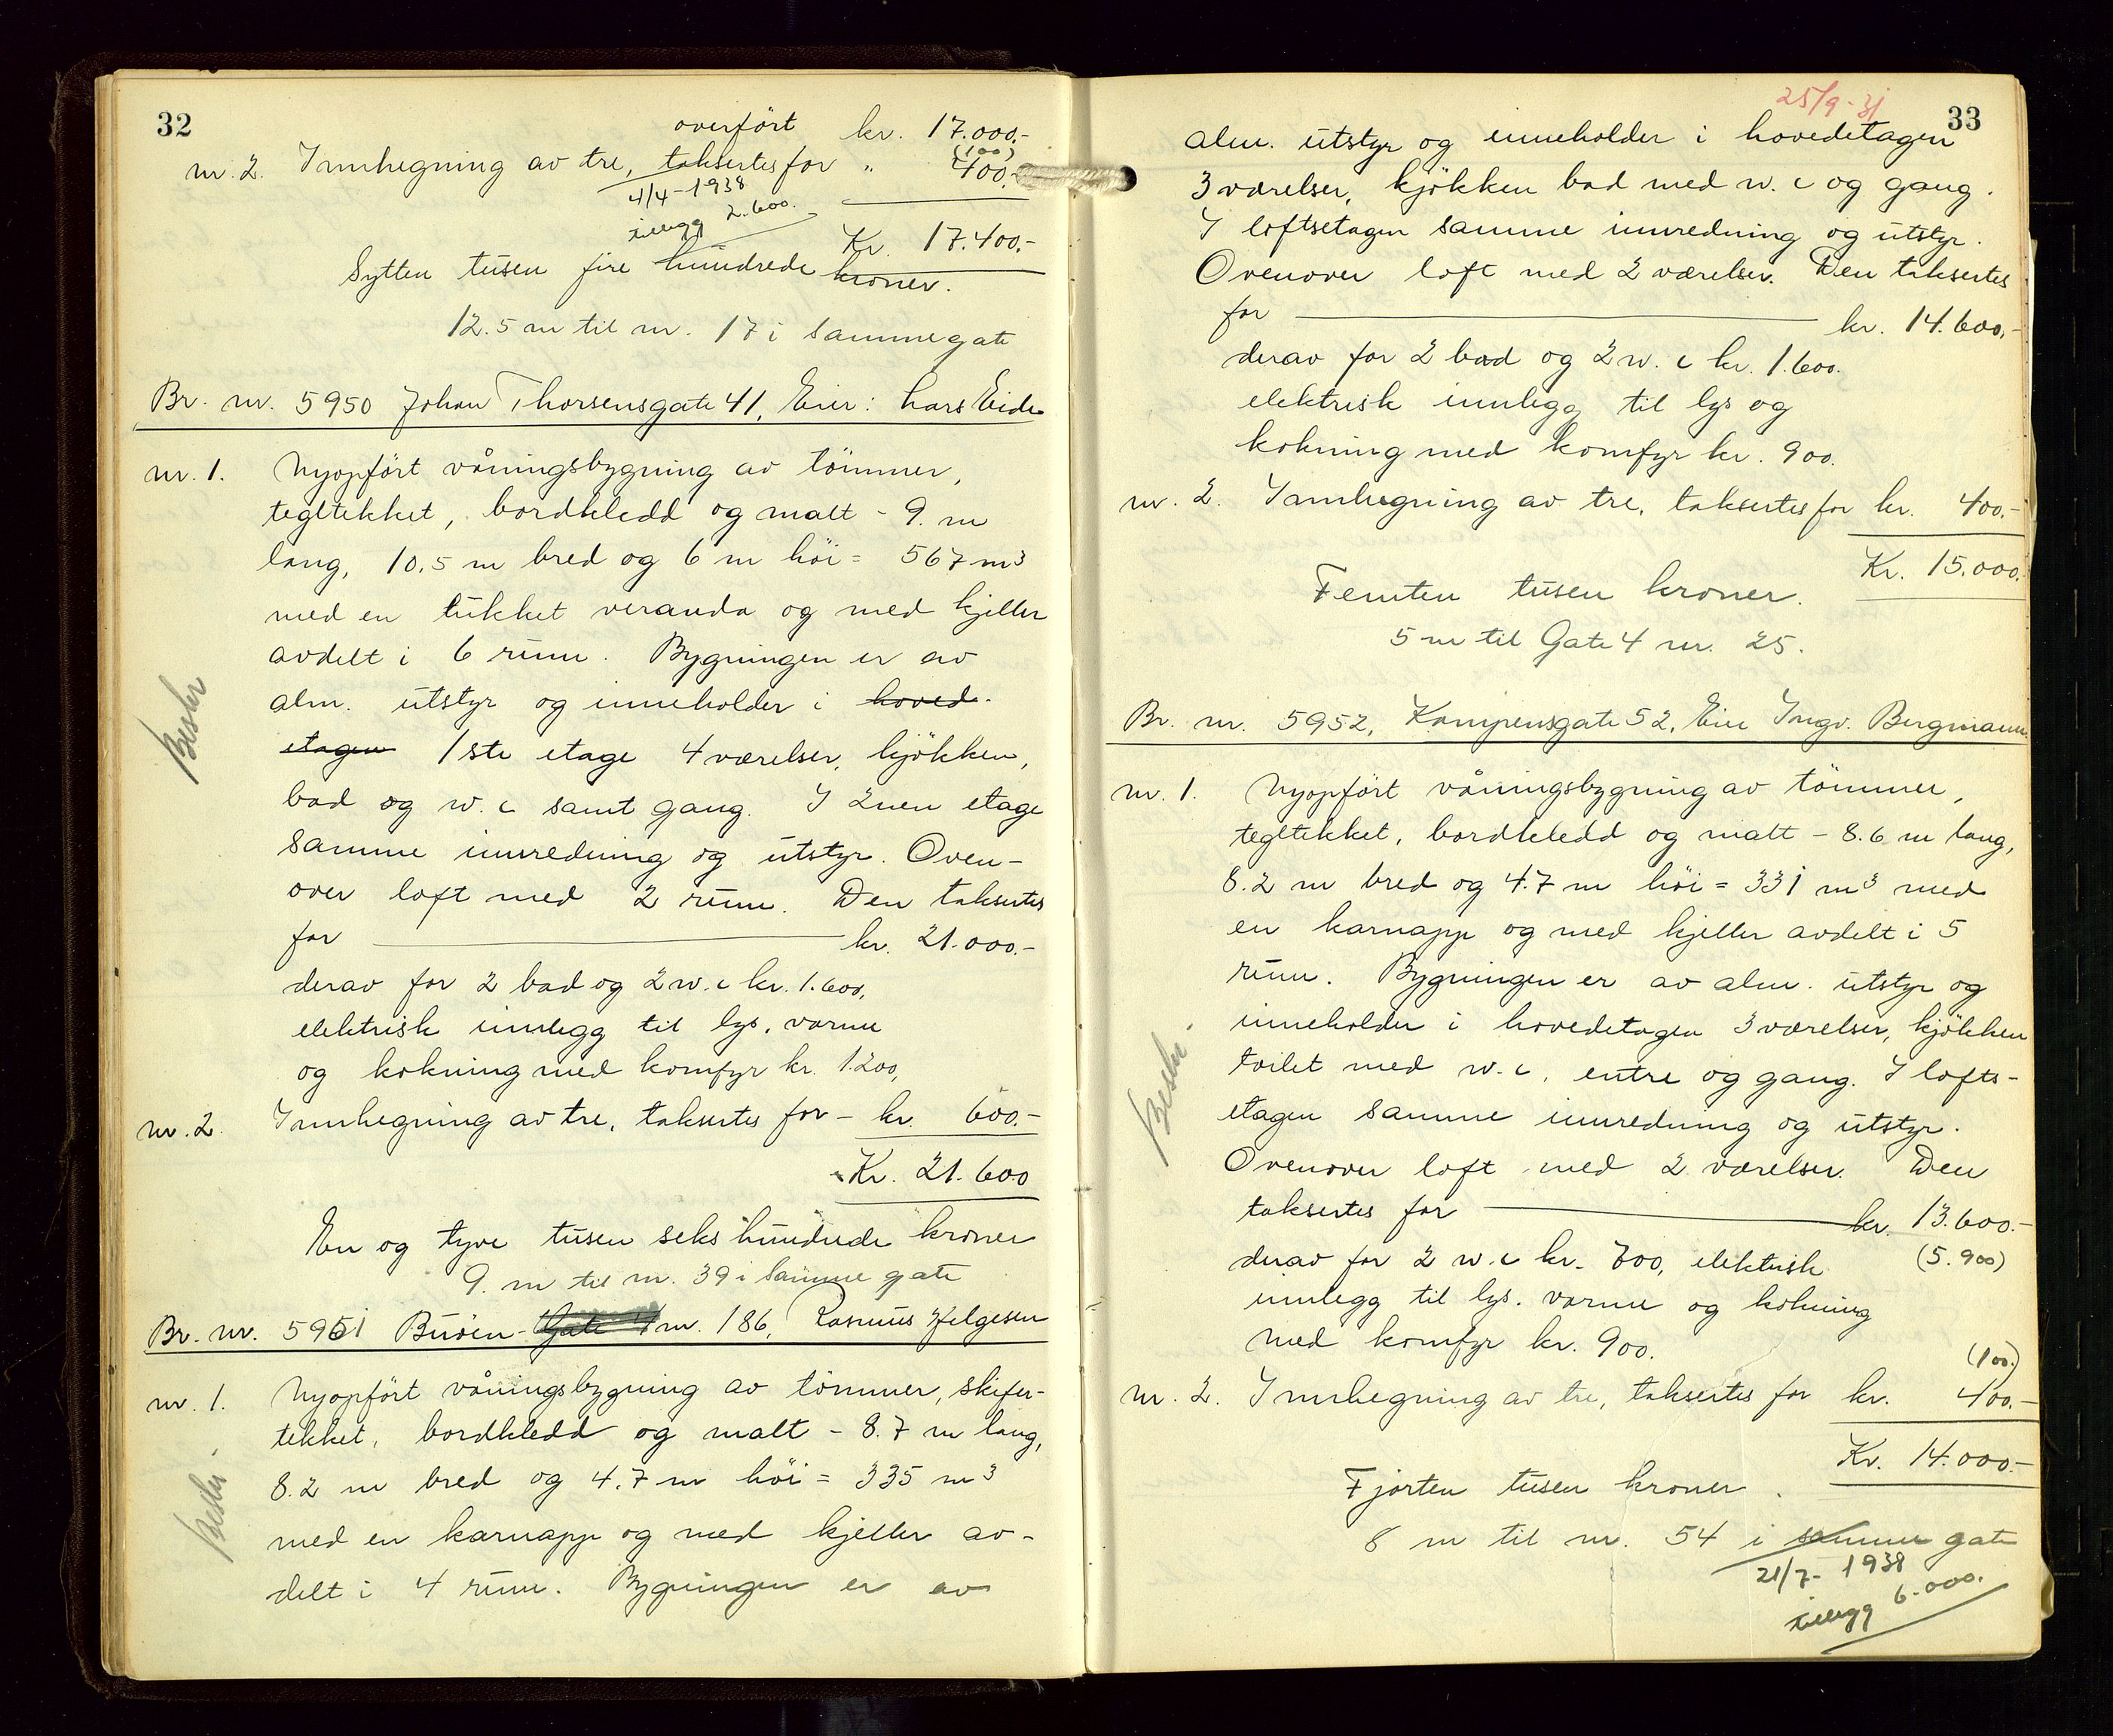 32
overført kr. 17.000.-
(100)
nr. 2. Innhegning av tre, taksertes for " 400.-
4/4-1938
tillegg 2.600.
Kr. 17.400.-
Sytten tusen fire hundrede kroner.
12.5 m til nr. 17 i samme gate
Br. nr. 5950 Johan Thorsensgate 41, Eier: Lars Eide
nr. 1. Nyopført våningsbygning av tömmer,
tegltekket, bordkledd og malt - 9. m
lang, 10.5 m bred og 6 m höi = 567 m³
med en lukket veranda og med kjeller
avdelt i 6 rum. Bygningen er av
alm. utstyr og inneholder i hoved-
etagen 1ste etage 4 værelser, kjökken,
bad og w.c samt gang. I 2nen etage
samme innredning og utstyr. Oven-
over loft med 2 rum. Den taksertes
for kr. 21.000.-
derav for 2 bad og 2 w.c kr. 1.600,
elektrisk innlegg til lys, varme
og kokning med komfyr kr. 1.200,
nr. 2. Innhegning av tre, taksertes for - kr. 600.-
Kr. 21.600
En og tyve tusen seks hundrede kroner
9. m til nr. 39 i samme gate
Br. nr. 5951 Buöen- Gate 4 nr. 186, Rasmus Helgesen
nr. 1. Nyopført våningsbygning av tömmer, skifer-
tekket, bordkledd og malt - 8.7 m lang,
8.2 m bred og 4.7 m höi = 335 m³
med en karnapp og med kjeller av-
delt i 4 rum. Bygningen er av
33
25/9-31
alm. utstyr og inneholder i hovedetagen
3 værelser, kjökken bad med w.c og gang.
I loftsetagen samme innredning og utstyr.
Ovenover loft med 2 værelser. Den taksertes
for kr. 14.600,-
derav for 2 bad og 2 w.c kr. 1.600.
elektrisk innlegg til lys og
kokning med komfyr kr. 900.
nr. 2. Innhegning av tre, taksertes for kr. 400.-
Kr. 15.000.-
Femten tusen kroner.
5 m til Gate 4 nr. 25.
Br. nr. 5952, Kampensgate 52, Eier Ingv. Bergmann.
nr. 1. Nyopført våningsbygning av tömmer,
tegltekket, bordkledd og malt - 8.6 m lang,
8.2 m bred og 4.7 m höi = 331 m³ med
en karnapp og med kjeller avdelt i 5
rum. Bygningen er av alm. utstyr og
inneholder i hovedetagen 3 værelser, kjökken
toilet med w.c, entre og gang. I lofts-
etagen samme innredning og utstyr.
Ovenover loft med 2 værelser. Den
taksertes for kr. 13.600.-
derav for 2 w.c kr. 700, elektrisk (5.900)
innlegg til lys, varme og kokning
med komfyr kr. 900.
(100)
nr. 2. Innhegning av tre, taksertes for kr. 400.-
Kr. 14.000.-
Fjorten tusen kroner.
8 m til nr. 54 i samme gate
21/7-1938
tillegg 6.000.